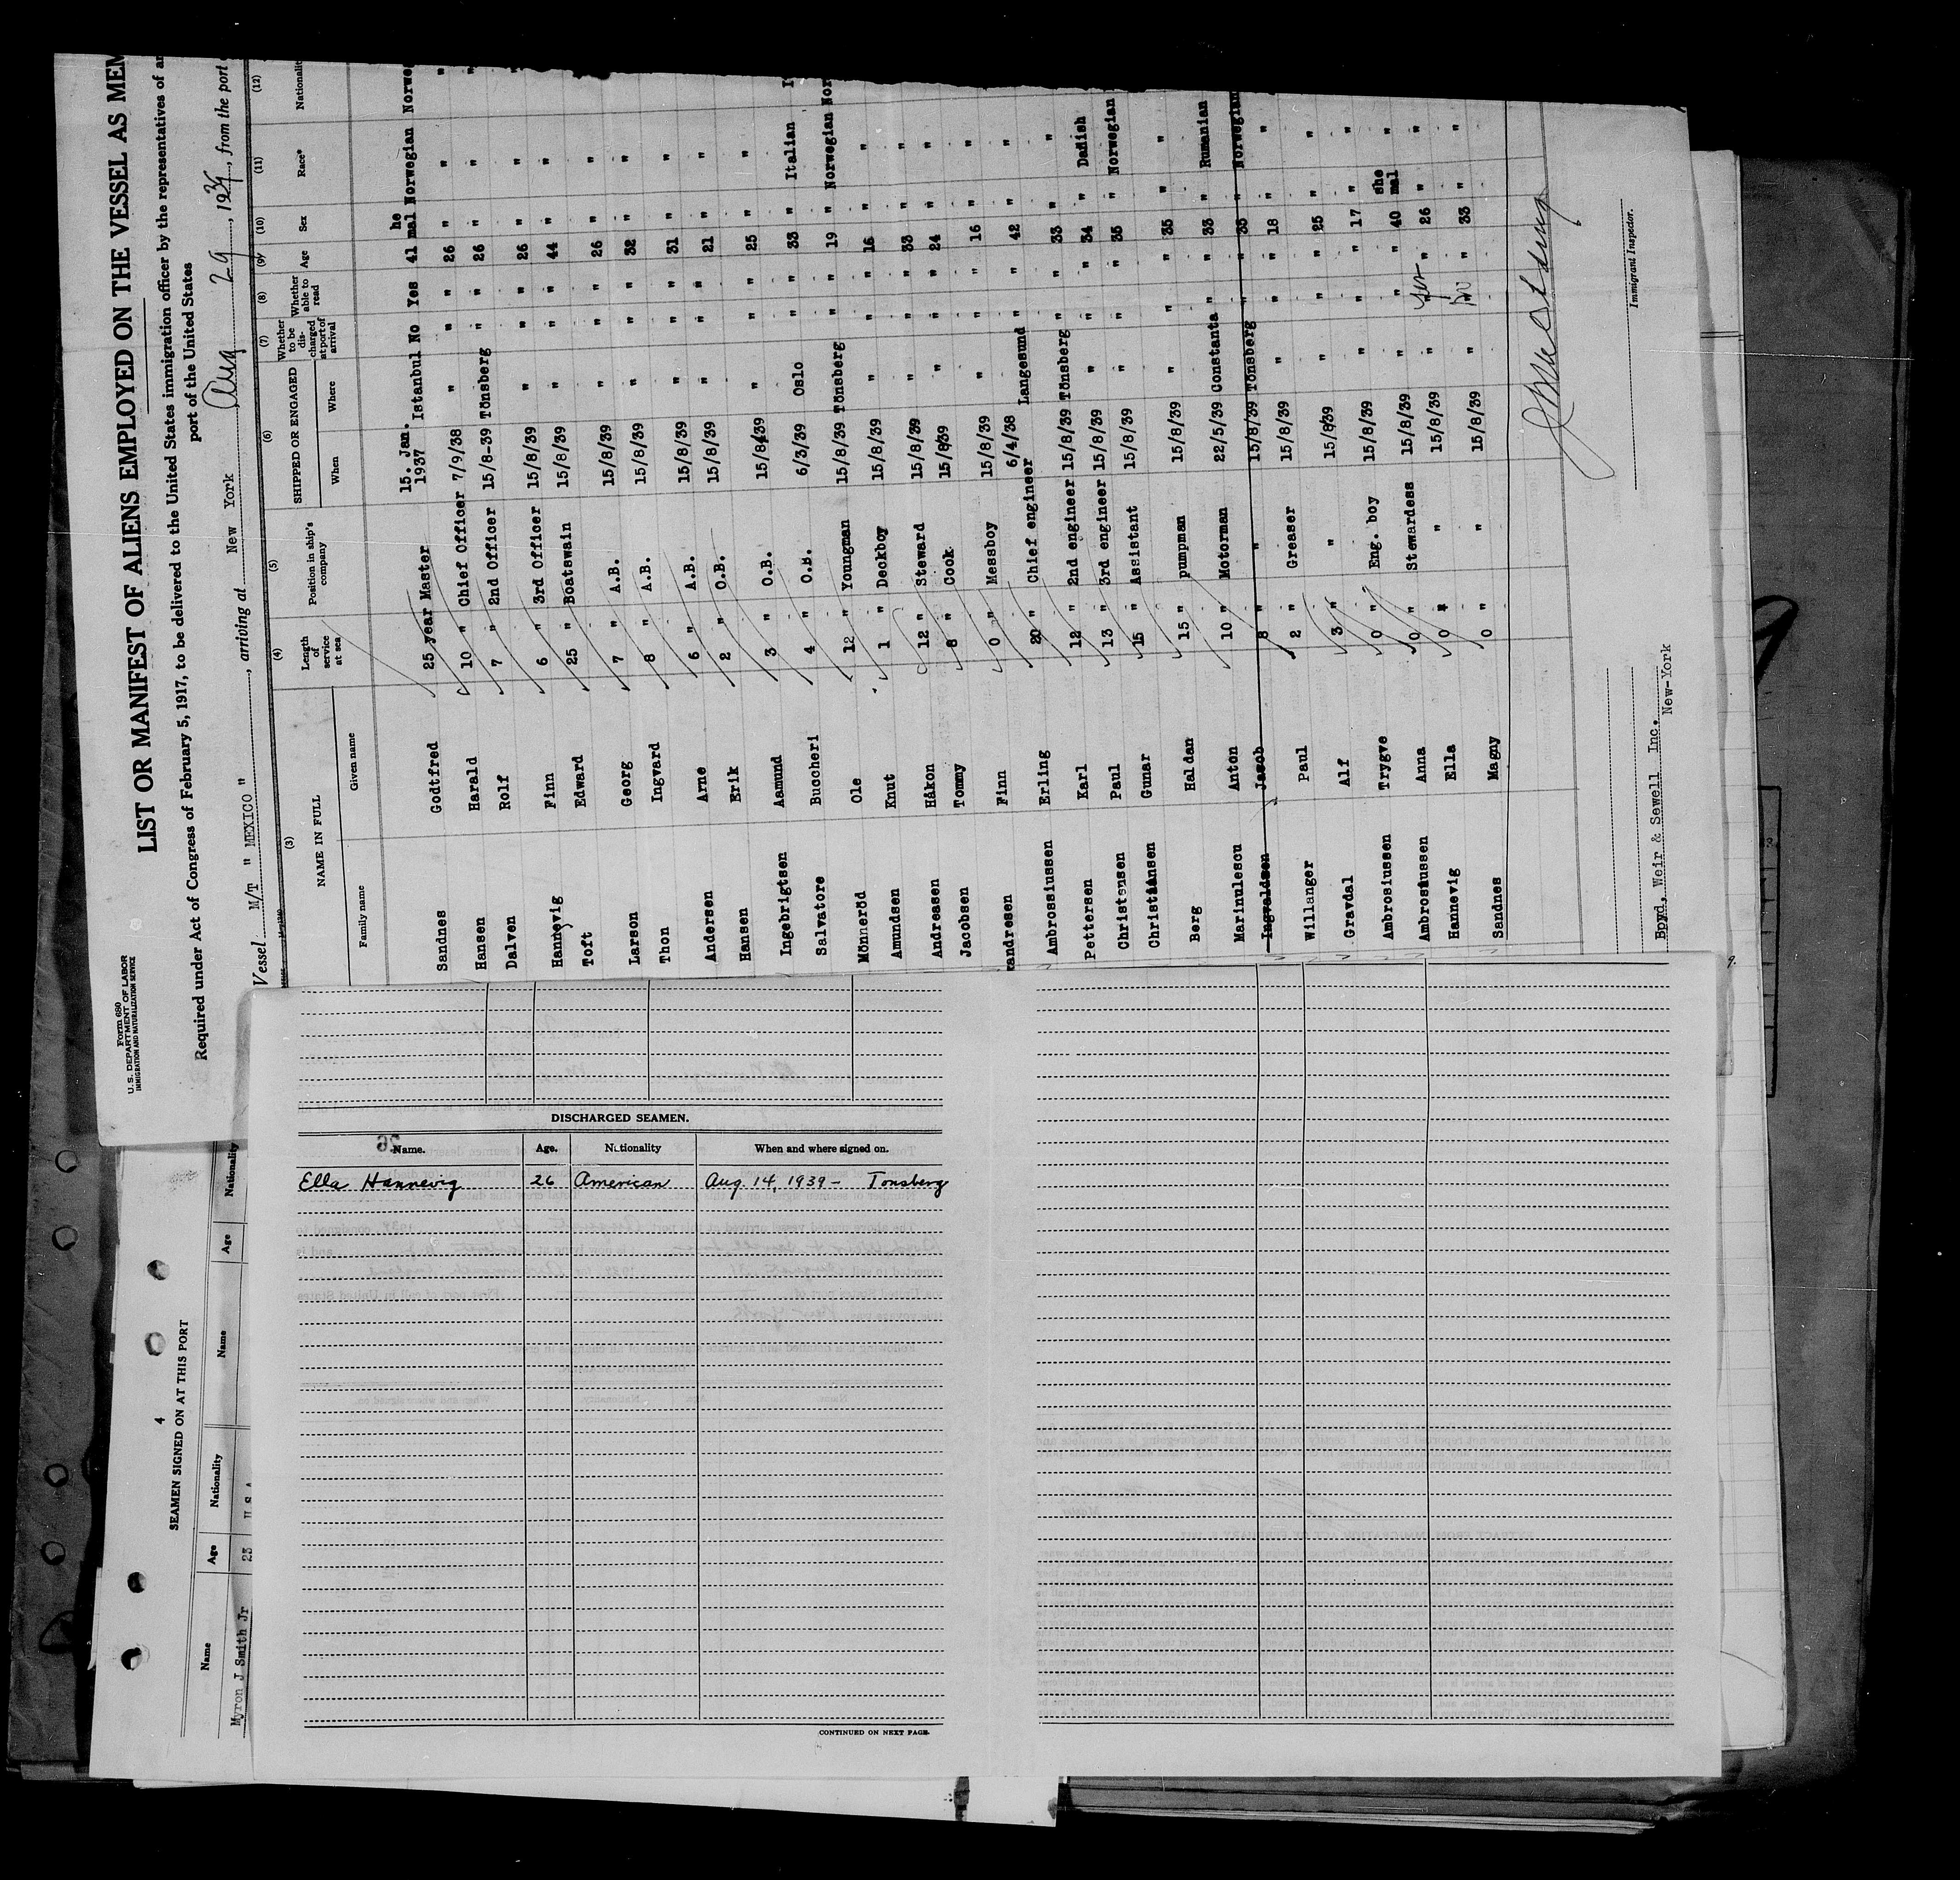 Form 680
U. S. DEPARTMENT OF LABOR
IMMIGRATION AND NATURALIZATION SERVICE
LIST OR MANIFEST OF ALIENS EMPLOYED ON THE VESSEL AS MEM
Required under Act of Congress of February 5, 1917, to be delivered to the United States immigration officer by the representatives of an
port of the United States
Vessel M/T " MEXICO ", arriving at New York, Aug 29, 193, from the port
(3) (4) (5) (6) (7) (8) (9) (10) (11) (12)
NAME IN FULL Length of service at sea Position in ship's company SHIPPED OR ENGAGED Whether to be discharged at port of arrival Whether able to read Age Sex Race* Nationalit
Family name Given name When Where
Sandnes Godtfred 25 year Master 15. Jan. 1937 Istanbul No Yes 41 he mal Norwegian Norwe
Hansen Harald 10 " Chief Officer 7/9/38 " " " 26 " " "
Dalven Rolf 7 " 2nd Officer 15/8-39 Tönsberg " " 26 " " "
Hannevig Finn 6 " 3rd Officer 15/8/39 " " " 26 " " "
Toft Edward 25 " Boatswain 15/8/39 " " " 44 " "
Larson Georg 7 " A.B. 15/8/39 " " " 26 " "
Thon Ingvard 8 " A.B. 15/8/39 " " " 32 " "
Andersen Arne 6 " A.B. 15/8/39 " " " 31 " "
Hansen Erik 2 " O.B. 15/8/39 " " " 21 " "
Ingebrigtsen Aamund 3 " O.B. 15/8/39 " " " 25 " "
Salvatore Buccheri 4 " O.B. 6/3/39 Oslo " " 33 " Italian I
Mönneröd Ole 12 " Youngman 15/8/39 Tönsberg " " 19 " Norwegian Nor
Amundsen Knut 1 " Deckboy 15/8/39 " " " 16 " "
Andreasen Håkon 12 " Steward 15/8/39 " " " 33 " "
Jacobsen Tommy 8 " Cook 15/8/39 " " " 24 " "
andresen Finn 0 " Messboy 15/8/39 " " " 16 " "
Ambrossiussen Erling 20 " Chief engineer 6/4/38 Langesund " " 42 " "
Pettersen Karl 12 " 2nd engineer 15/8/39 Tönsberg " " 33 " "
Christensen Paul 13 " 3rd engineer 15/8/39 " " " 34 " Danish
Christiansen Gunar 15 " Assistant 15/8/39 " " " 35 " Norwegian
Berg Haldan 15 " pumpman 15/8/39 " " " 35 " "
Marinulescu Anton 10 " Motorman 22/5/39 Constanta " " 33 " Rumanian
Ingvaldsen Jacob 8 " " 15/8/39 Tönsberg " " 35 " Norwegian
Willanger Paul 2 " Greaser 15/8/39 " " " 18 " "
Gravdal Alf 3 " " 15/8/39 " " " 25 " "
Ambrosiussen Trygve 0 " Eng. boy 15/8/39 " " " 17 " "
Ambrosiussen Anna 0 " Stewardess 15/8/39 " " " 40 she mal "
Hannevig Ella 0 " " 15/8/39 " yes " 26 " "
Sandnes Magny 0 " " 15/8/39 " no " 33 " "
Immigrant Inspector.
Boyd, Weir & Sewell Inc.
New-York
4
SEAMEN SIGNED ON AT THIS PORT
Name Age Nationality Name Age Nationality
Myron J Smith Jr 23 U S A
DISCHARGED SEAMEN.
Name. Age. Nationality When and where signed on.
Ella Hannevig 26 American Aug. 14, 1939 - Tonsberg
CONTINUED ON NEXT PAGE.